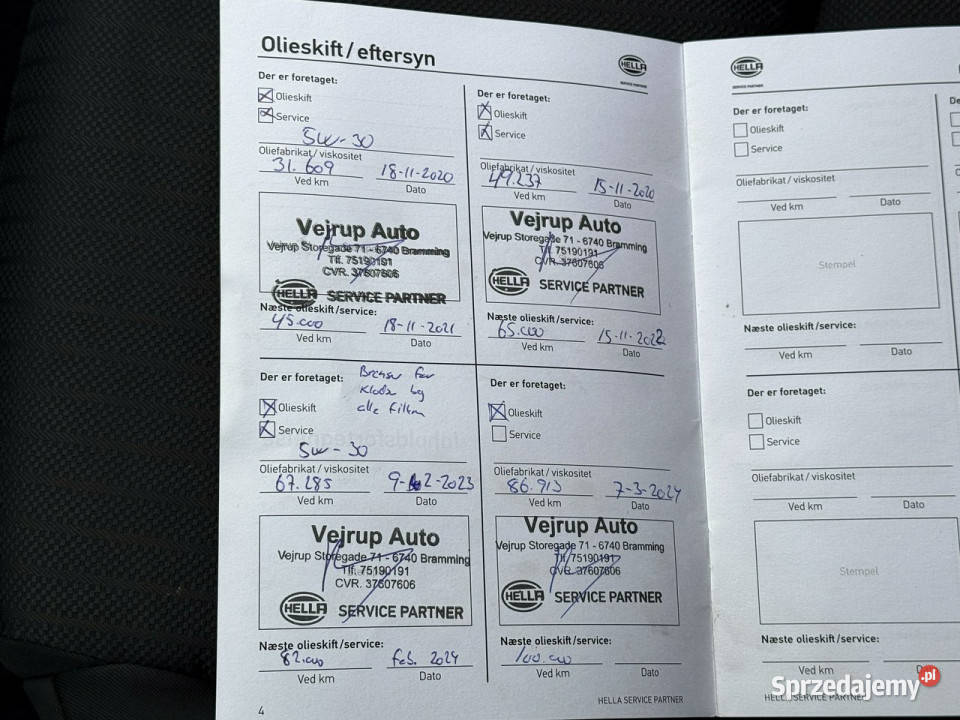 Olieskift / eftersyn
HELLA
SERVICE PARTNER
Der er foretaget:
Olieskift
Service
5w-30
Oliefabrikat / viskositet
31.609 18-11-2020
Ved km Dato
Vejrup Auto
Vejrup Storegade 71 - 6740 Bramming
Tlf. 75190191
CVR. 37607606
HELLA SERVICE PARTNER
Næste olieskift/service:
45.000 18-11-2021
Ved km Dato
Der er foretaget:
Olieskift
Service
Oliefabrikat / viskositet
49.237 15-11-2020
Ved km Dato
Vejrup Auto
Vejrup Storegade 71 - 6740 Bramming
Tlf. 75190191
CVR. 37607606
HELLA SERVICE PARTNER
Næste olieskift/service:
65.000 15-11-2022
Ved km Dato
Der er foretaget:
alle
Olieskift
Service
5w-30
Oliefabrikat / viskositet
67.285 9-2-2023
Ved km Dato
Vejrup Auto
Vejrup Storegade 71 - 6740 Bramming
Tlf. 75190191
CVR. 37607606
HELLA SERVICE PARTNER
Næste olieskift/service:
82.000 Feb. 2024
Ved km Dato
4
Der er foretaget:
Olieskift
Service
Oliefabrikat / viskositet
86.913 7-3-2024
Ved km Dato
Vejrup Auto
Vejrup Storegade 71 - 6740 Bramming
Tlf. 75190191
CVR. 37607606
HELLA SERVICE PARTNER
Næste olieskift/service:
100.000
Ved km Dato
HELLA SERVICE PARTNER
HELLA
SERVICE PARTNER
Der er foretaget:
Olieskift
Service
Oliefabrikat / viskositet
Ved km Dato
Stempel
Næste olieskift/service:
Ved km Dato
Der er foretaget:
Olieskift
Service
Oliefabrikat / viskositet
Ved km Dato
Stempel
Næste olieskift/service:
Ved km Dato
HELLA SERVICE PARTNER
Sprzedajemy.pl